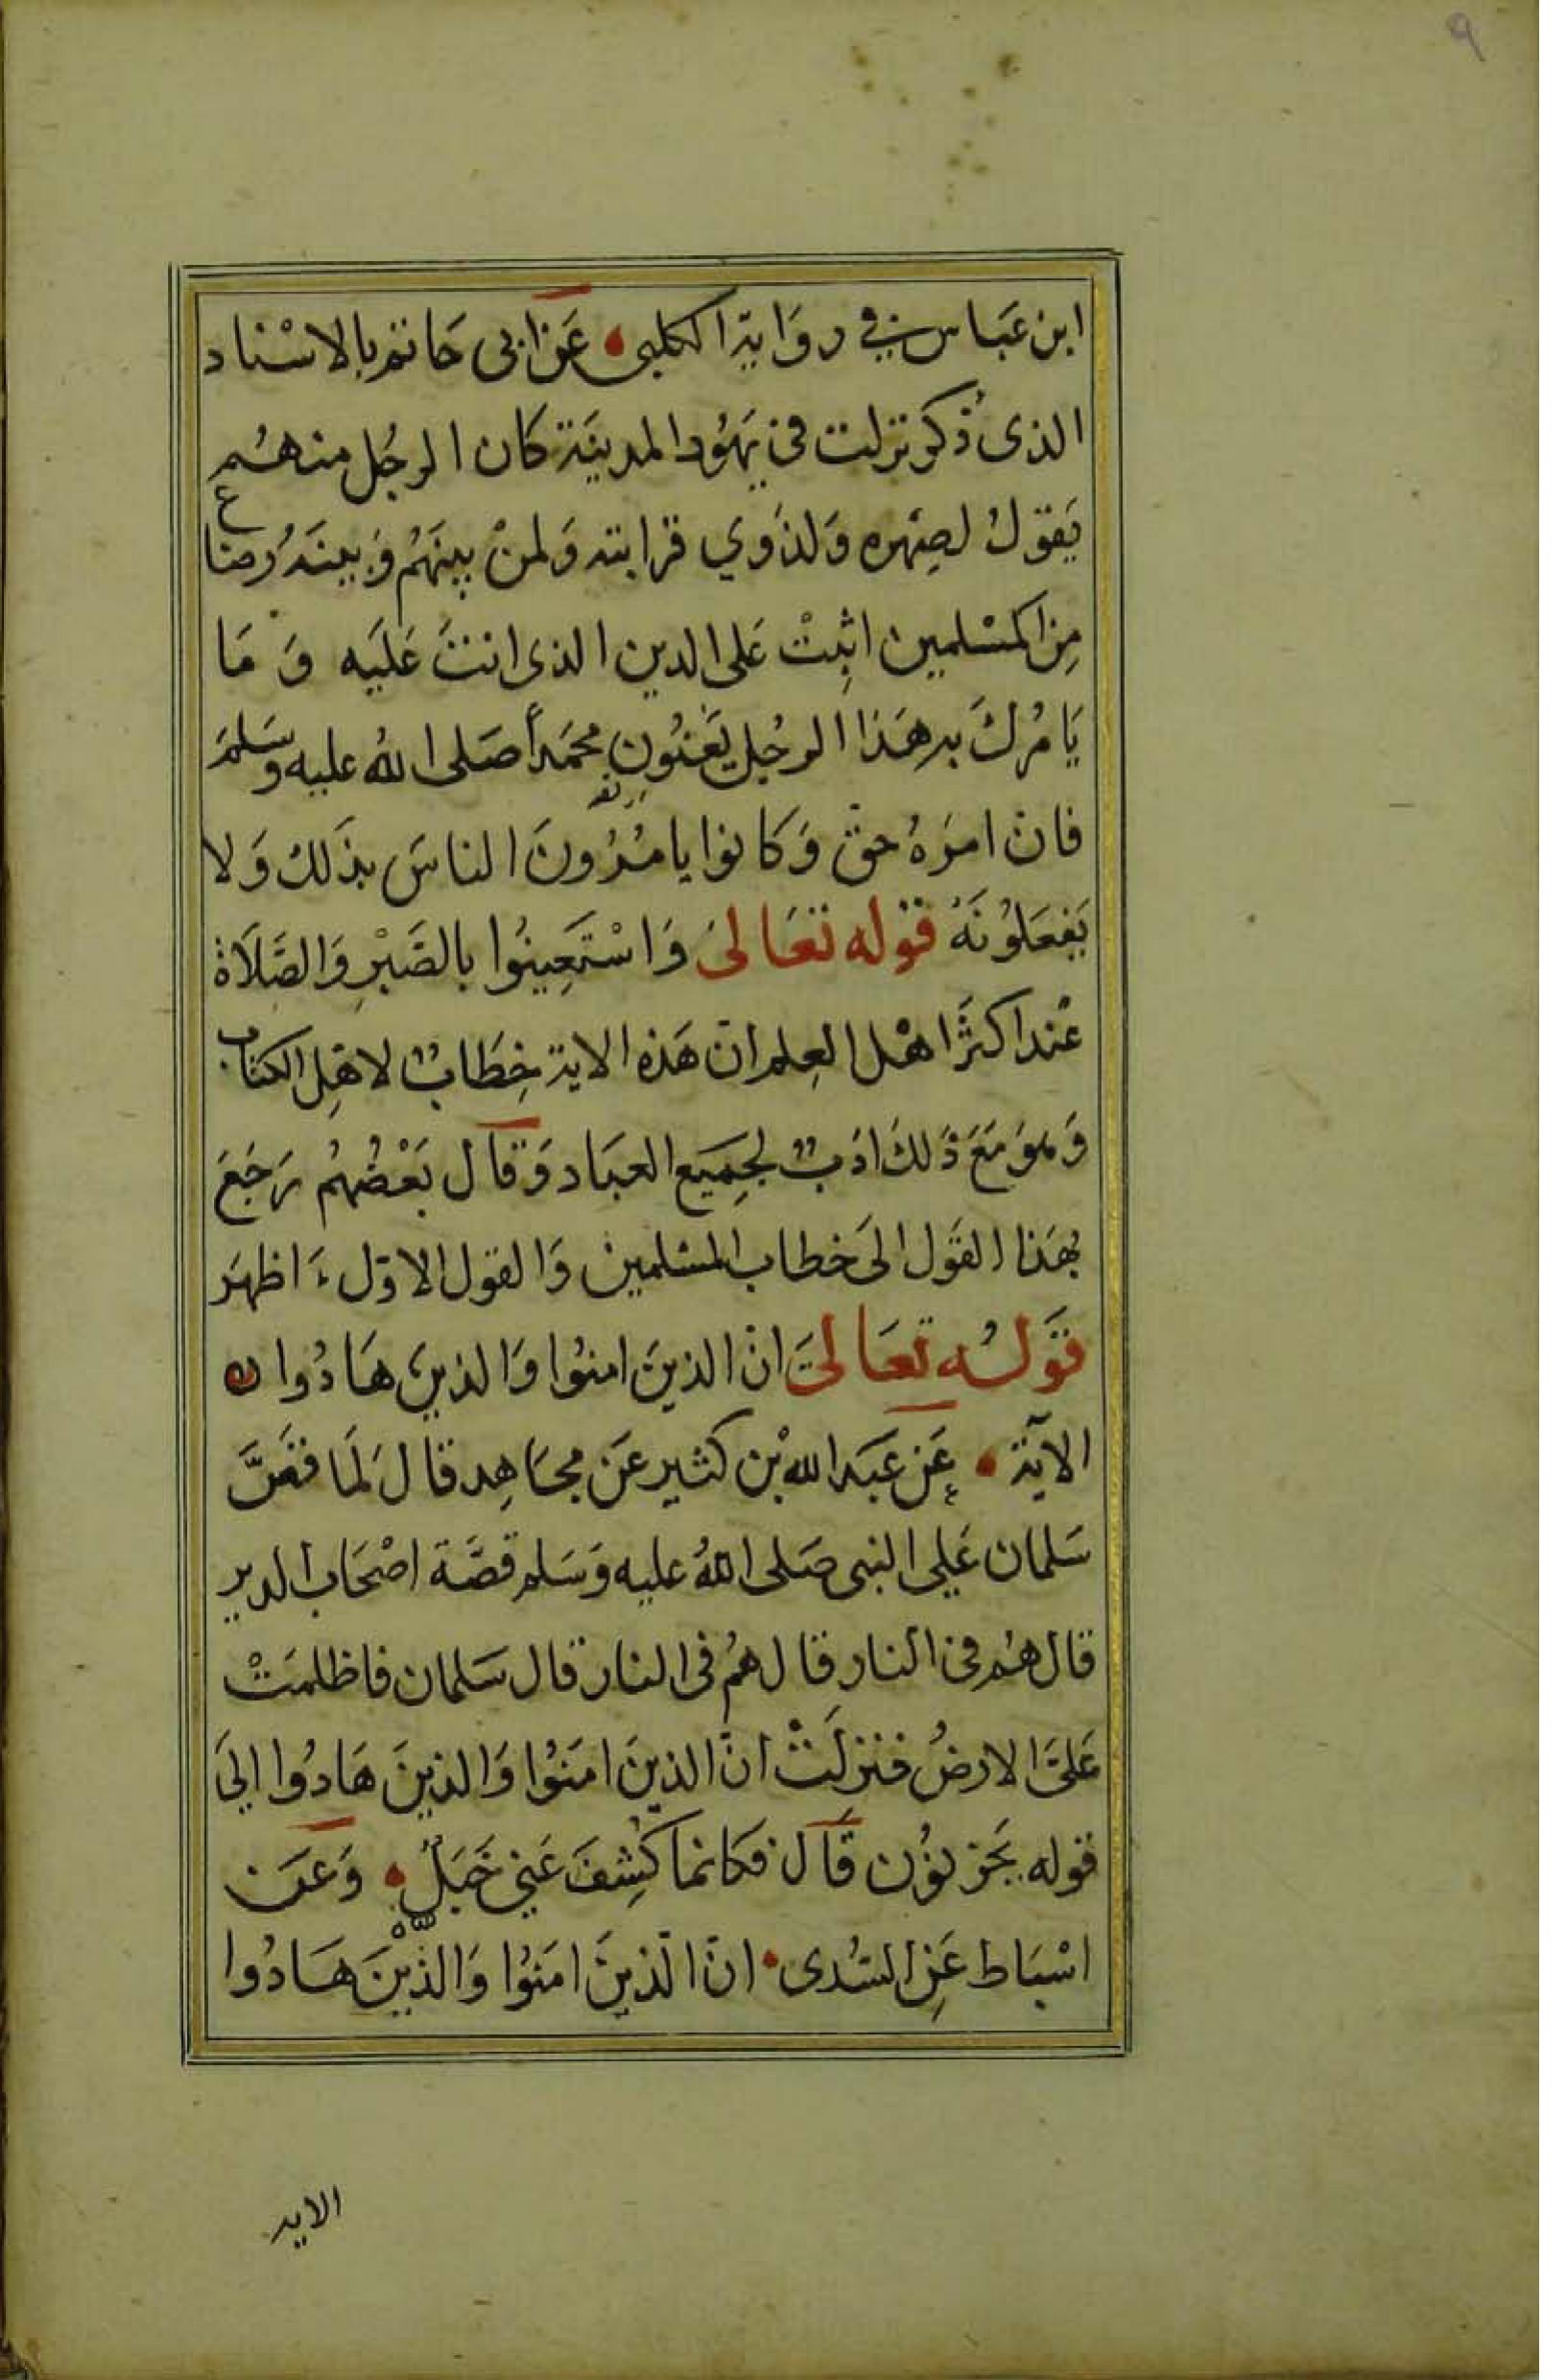 ٩
ابن عَباس في رِوَاية الكلبي عَن ابى حَاتم بالاسْناد
الذى ذُكر نزلت في يَهُود المدينَة كان الرجُل منهُم
يَقولُ لصِهره وَلذَوي قرابته وَلمنْ بينهُم وَبينَهُ رضاع
مِن المسْلمين اثبِتْ عَلى الدين الذى انتَ عَليَه وَمَا
يَامُرُكَ به هَذا الرجُل يَعْنُون محمَداً صَلى اللهُ عليه وسَلمَ
فان امرَهُ حقّ وَكانوا يامُرُونَ الناسَ بذَلك وَلا
يَفعَلوُنَهُ قوله تعَالىَ وَاسْتَعِينُوا بالصَّبْرِ وَالصَّلَاة
عْند اكثَر اهْل العِلم انّ هَذه الاية خِطَابٌ لاهْلِ الكتاب
وَهوَ مَعَ ذَلكَ ادَبٌ لجِمَيع العبَاد وَقال بَعْضُهُم رَجَعَ
بهَذا القَول الىَ خطاب المسْلمين وَالقول الاوّل اظهَر
قوَلُه تعَالىَ انّ الذينَ امنوُا وَالذين هَادُوا
الآيَة عَن عَبَد الله بْن كثير عَن مجَاهِد قالَ لَمَا قصَّ
سَلمان عَلي النبى صَلى اللهُ عليه وَسَلم قصَّة اصْحَاب الدير
قال هُم في النار قال هُم فى النار قال سَلمان فاظلمَتْ
عَلىَّ الارضُ فنزلَتْ انّ الذينَ امَنوُا وَالذينَ هَادُوا اليَ
قوله يَحزنوُن قَالَ فكانما كُشِفَ عَني جَبَلٌ وَعَن
اسْبَاط عَنِ السُدى انّ الّذينَ امَنوُا وَالذِّيْنَ هَادُوا
الايه